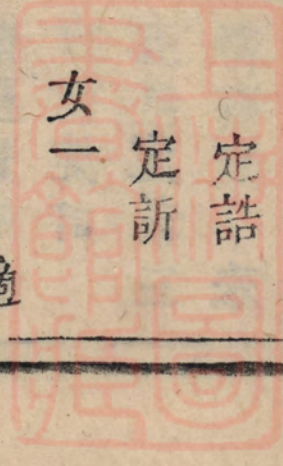 定誥
定訢
女一
適